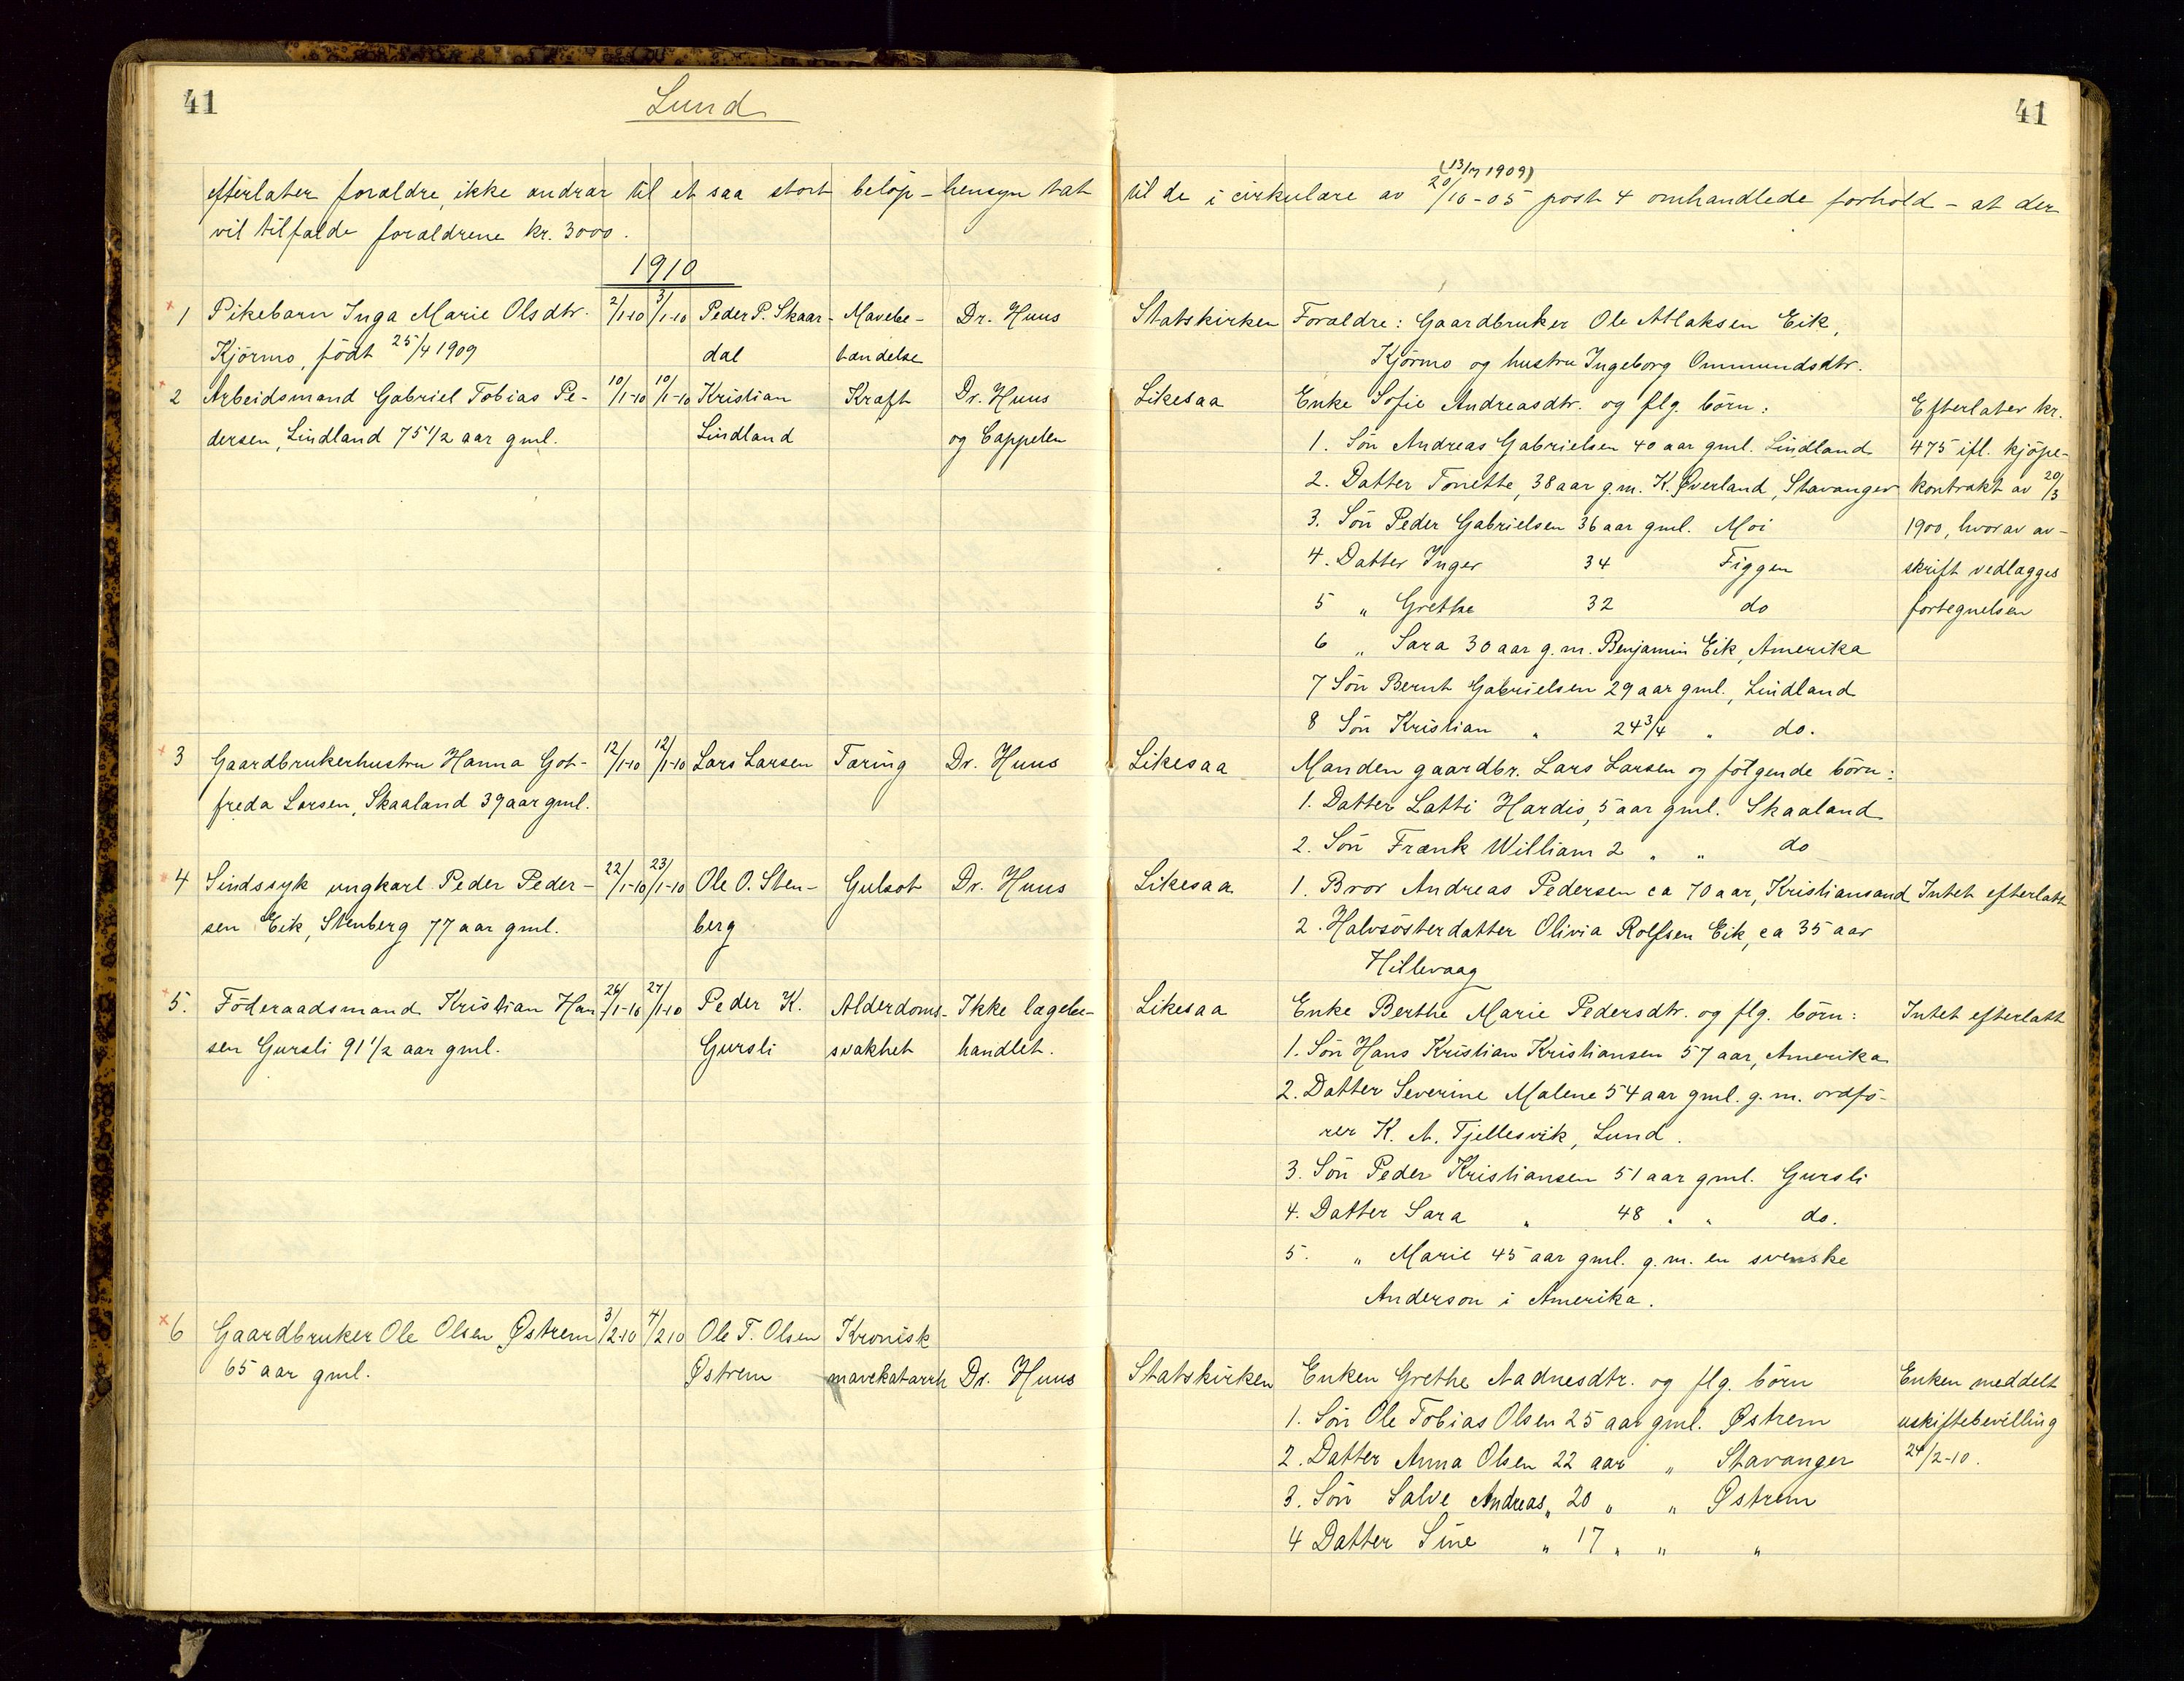 41
Lund
41
efterlater forældre, ikke andrar til et saa stort beløp - hensyn tat til de i cirkulære av 20/10-05 (13/7 1909) post 4 omhandlede forhold - at der
vil tilfalde forældrene kr. 3000.
1910
1 Pikebarn Inga Marie Olsdtr. 2/1-10 3/1-10 Peder P. Skaar- Mavebe- Dr. Huus Statskirken Forældre: Gaardbruker Ole Atlaksen Eik,
Kjörmo, födt 25/4 1909 dal tændelse Kjörmo og hustru Ingeborg Ommundsdtr.
2 Arbeidsmand Gabriel Tobias Pe- 10/1-10 10/1-10 Kristian Kræft Dr. Huus Likesaa Enke Sofie Andreasdtr. og flg. börn: Efterlater kr.
dersen, Lindland 75 1/2 aar gml. Lindland og Cappelen 1. Sön Andreas Gabrielsen 40 aar gml. Lindland 475 ifl. kjöpe-
2. Datter Tonette, 38 aar g.m. K. Øverland, Stavanger kontrakt av 20/3
3. Sön Peder Gabrielsen 36 aar gml. Moi 1900, hvorav av-
4. Datter Inger 34 Figgen skrift vedlægges
5 " Grethe 32 do fortegnelsen
6 " Sara 30 aar g.m. Benjamin Eik, Amerika
7 Sön Bernt Gabrielsen 29 aar gml., Lindland
8 Sön Kristian " 24 3/4 " do.
3 Gaardbrukerhustru Hanna Got- 12/1-10 12/1-10 Lars Larsen Tæring Dr. Huus Likesaa Manden gaardbr. Lars Larsen og fölgende börn:
freda Larsen, Skaaland 39 aar gml. 1. Datter Latti Hardis, 5 aar gml. Skaaland
2. Sön Frank William 2 " " do
4 Sindssyk ungkarl Peder Peder- 22/1-10 23/1-10 Ole O. Sten- Gulsot Dr. Huus Likesaa 1. Bror Andreas Pedersen ca 70 aar, Kristiansand Intet efterlatt
sen Eik, Stenberg 77 aar gml. berg 2. Halvsösterdatter Olivia Rolfsen Eik, ca 35 aar
Hillevaag
5. Föderaadsmand Kristian Han- 26/1-10 27/1-10 Peder K. Alderdoms- Ikke lægebe- Likesaa Enke Berthe Marie Pedersdtr. og flg. börn: Intet efterlatt
sen Gursli 91 1/2 aar gml. Gursli svakhet handlet. 1. Sön Hans Kristian Kristiansen 57 aar, Amerika
2. Datter Severine Malene 54 aar gml. g.m. ordfö-
rer K. A. Tjellesvik, Lund.
3. Sön Peder Kristiansen 51 aar gml. Gursli
4. Datter Sara " 48 " " do.
5. " Marie 45 aar gml. g.m. en svenske
Anderson i Amerika.
6 Gaardbruker Ole Olsen Østrem 3/2-10 4/2-10 Ole T. Olsen Kronisk
65 aar gml. Østrem mavekatarrh Dr. Huus Statskirken Enken Grethe Aadnesdtr. og flg. börn Enken meddelt
1. Sön Ole Tobias Olsen 25 aar gml. Østrem uskiftebevilling
2. Datter Anna Olsen 22 aar " Stavanger 24/2-10.
3. Sön Salve Andreas " 20 " " Østrem
4 Datter Sine " 17 " " "